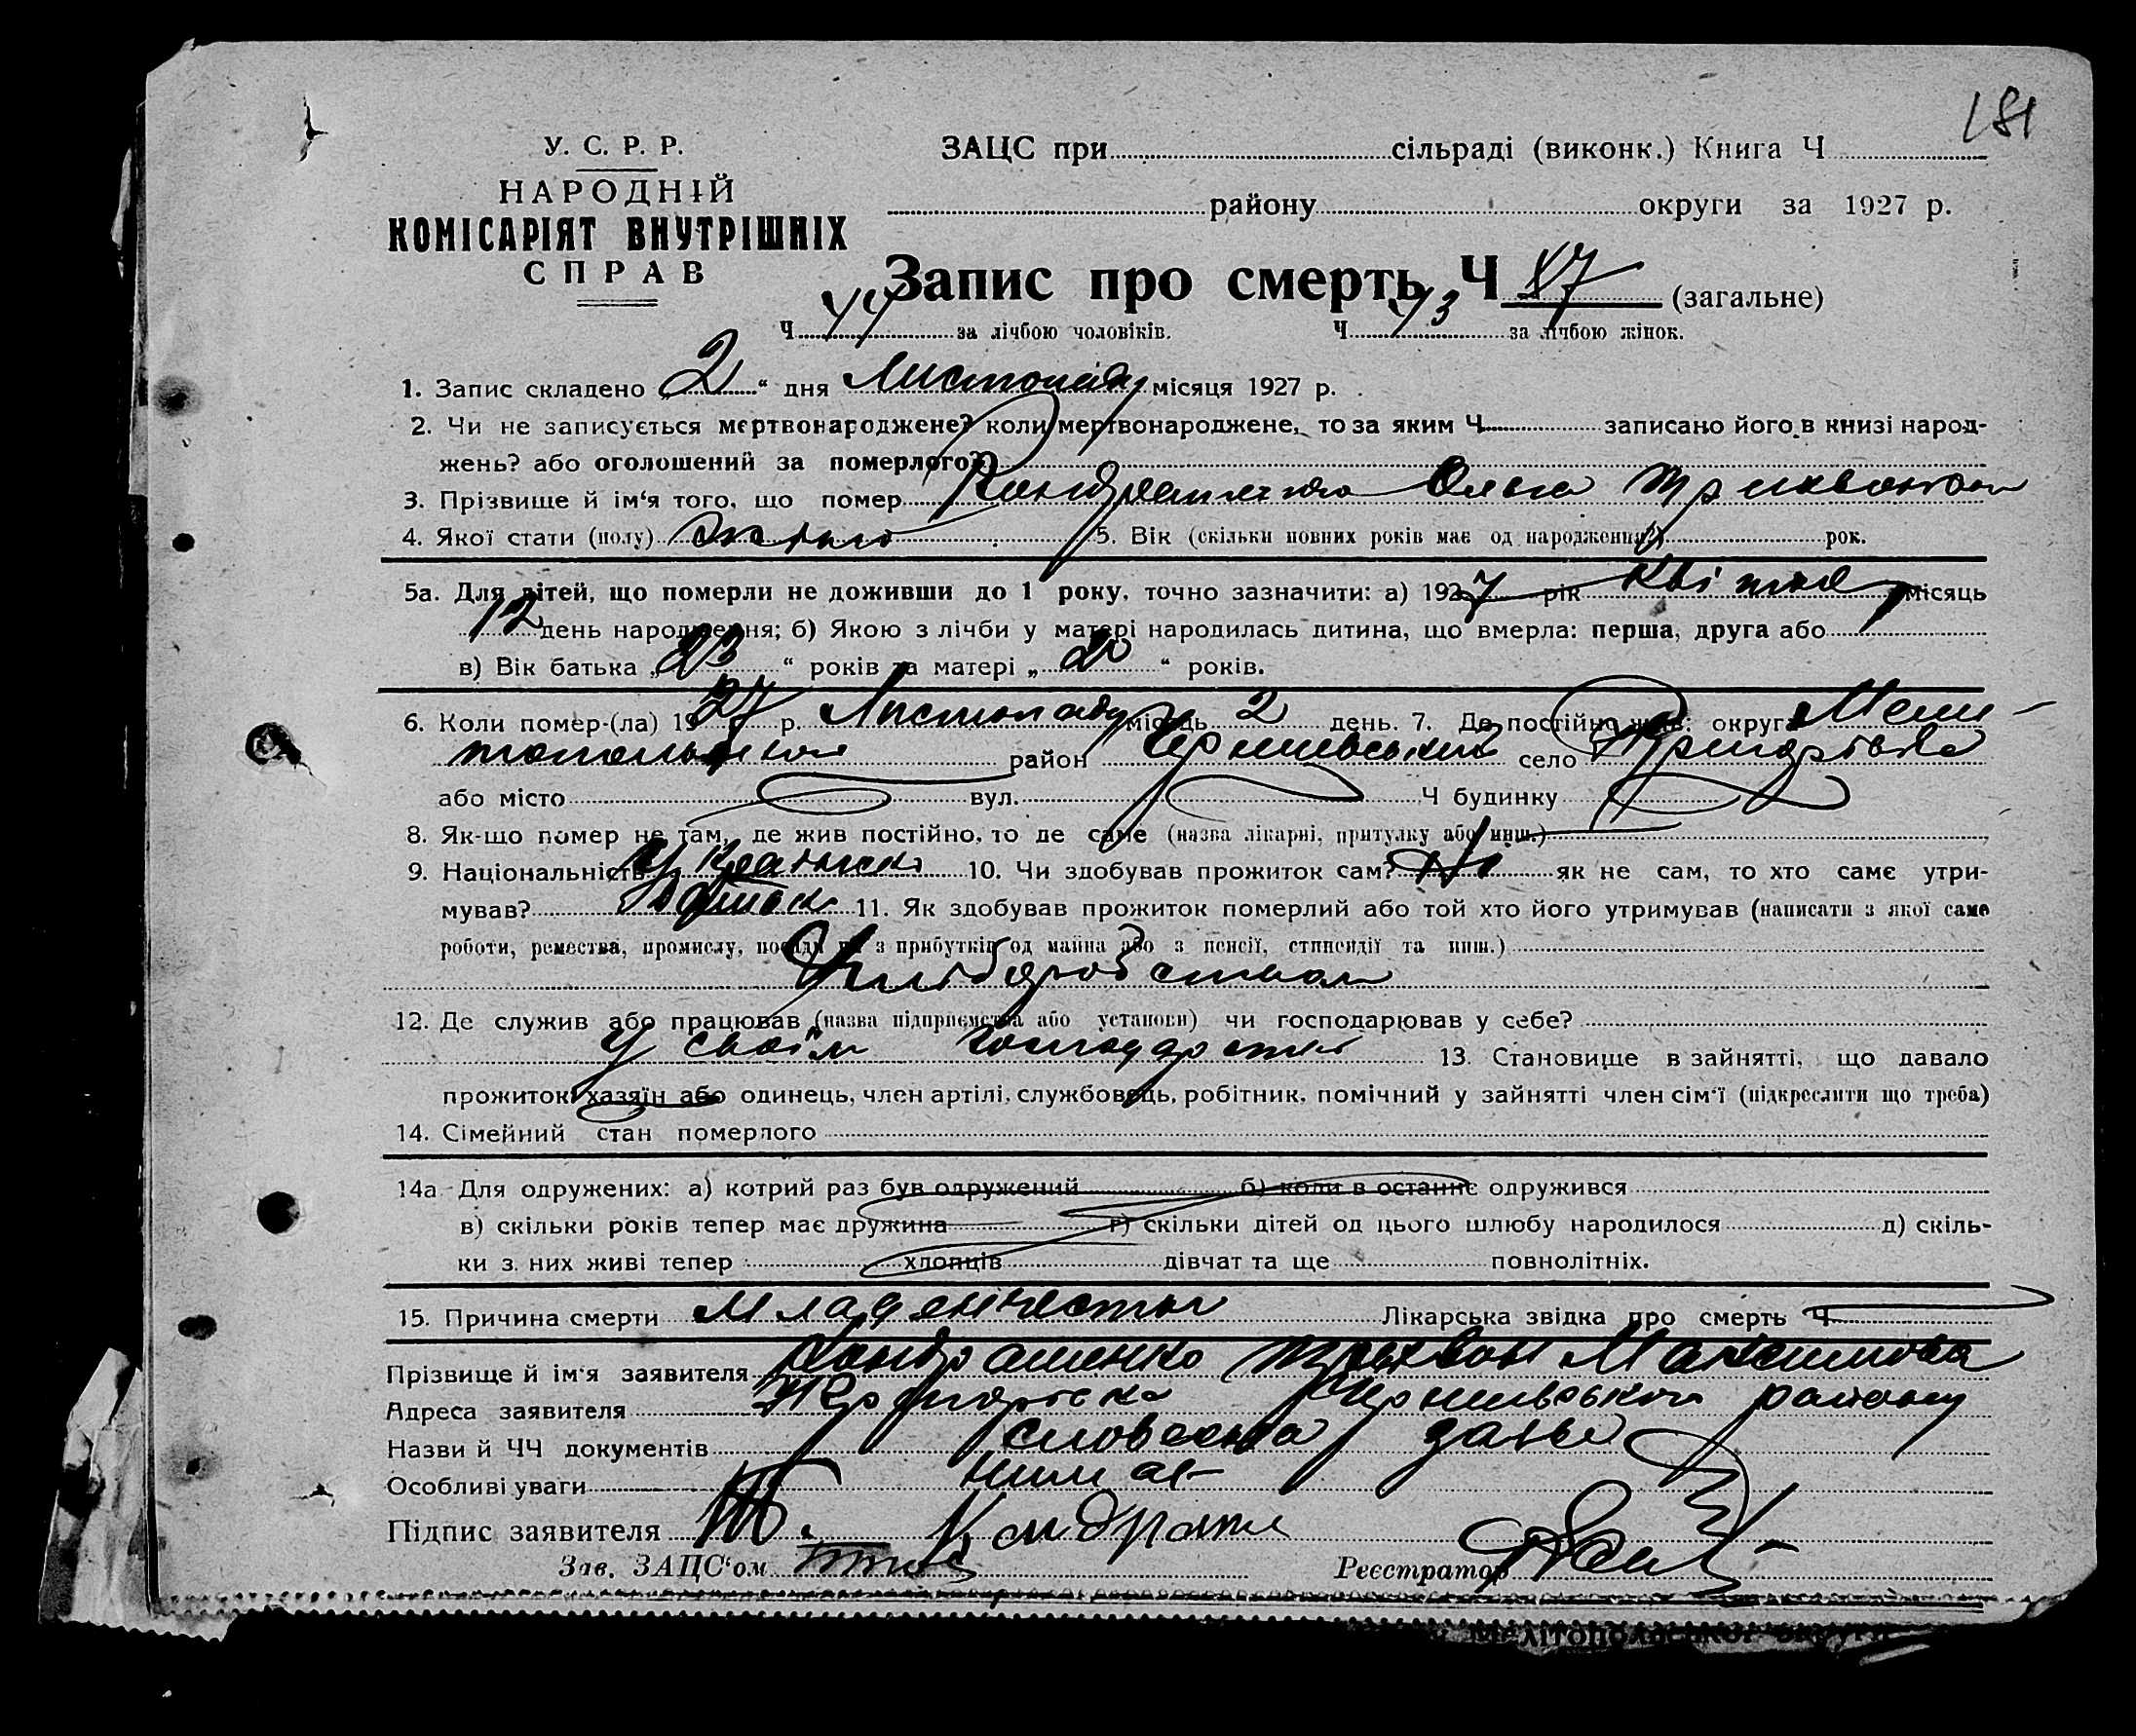 181
У. С. Р. Р.
НАРОДНІЙ
КОМІСАРІЯТ ВНУТРІШНІХ
СПРАВ
ЗАЦС при сільраді (виконк.) Книга Ч
району округи за 1927 р.
Запис про смерть Ч 87 (загальне)
Ч 44 за лічбою чоловіків. Ч 43 за лічбою жінок.
1. Запис складено „2“ дня Листопаду місяця 1927 р.
2. Чи не записується мертвонароджене? коли мертвонароджене, то за яким Ч записано його в книзі народ-
жень? або оголошений за померлого?
3. Прізвище й ім‘я того, що помер Кондрашенко Ольга
4. Якої стати (полу) 5. Вік (скільки повних років має од народження?) рок.
5а. Для дітей, що померли не доживши до 1 року, точно зазначити: а) 1927 рік Квітня місяць
12 день народження; б) Якою з лічби у матері народилась дитина, що вмерла: перша, друга або
в) Вік батька „23“ років та матері „20“ років.
6. Коли помер-(ла) 1927 р. Листопаду місяць 2 день. 7. Де постійно жив: округа Мели-
топольська район село
або місто вул. Ч будинку
8. Як-що помер не там, де жив постійно, то де саме (назва лікарні, притулку або инш.)
9. Національність 10. Чи здобував прожиток сам? Ні як не сам, то хто саме утри-
мував? 11. Як здобував прожиток померлий або той хто його утримував (написати з якої саме
роботи, ремества, промислу, посади чи з прибутків од майна або з пенсії, стипендії та инш.)
Хліборобством
12. Де служив або працював (назва підприємства або установи) чи господарював у себе?
У своїм господарстві 13. Становище в зайнятті, що давало
прожиток: хазяїн або одинець, член артілі, службовець, робітник, помічний у зайнятті член сім‘ї (підкреслити що треба)
14. Сімейний стан померлого
14а Для одружених: а) котрий раз був одружений б) коли в останнє одружився
в) скільки років тепер має дружина г) скільки дітей од цього шлюбу народилося д) скіль-
ки з них живі тепер хлопців дівчат та ще повнолітніх.
15. Причина смерти Младенчество Лікарська звідка про смерть Ч
Прізвище й ім‘я заявителя Кондрашенко Трихвон Максимова
Адреса заявителя району
Назви й ЧЧ документів словесна заява
Особливі уваги нимае
Підпис заявителя Т. Кондраше
Зав. ЗАЦС‘ом Реєстратор
Мелітопольської округи